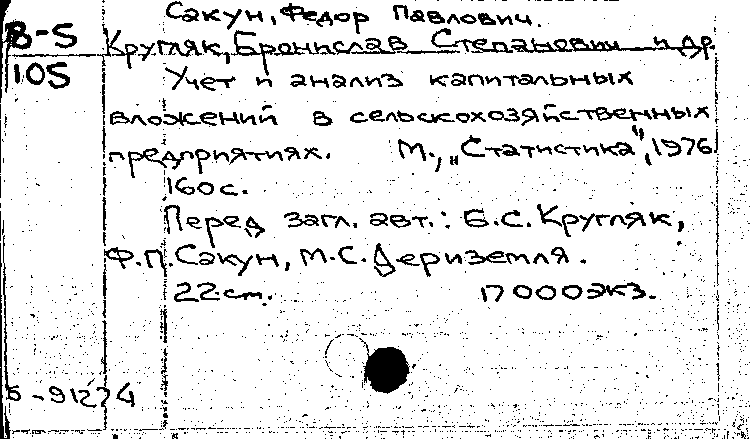 Сакун, Федор Павлович.
В-5 Кругляк, Бронислав Степанович и др.
105 Учет и анализ капитальных
вложений в сельскохозяйственных
предприятиях. М., „Статистика", 1976
160 с.
Перед загл. авт.: Б.С. Кругляк,
Ф.П. Сакун, М.С. Дериземля.
22 см. 17000 экз.
Б-91274